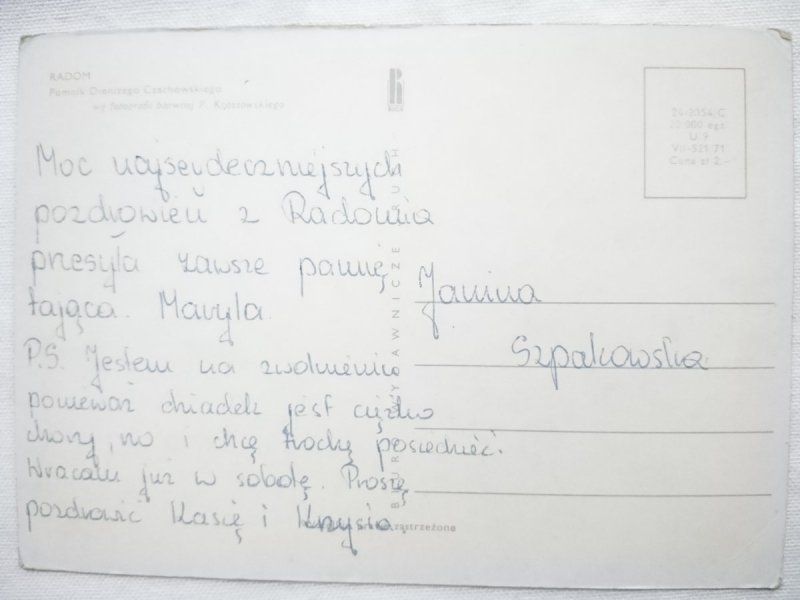 RADOM
Pomnik Dionizego Czachowskiego
wg fotografii barwnej P. Krassowskiego
RUCH
24-2354/C
20 000 egz.
U 9
VII-521/71
Cena zł 2,-
Moc najserdeczniejszych
pozdrowień z Radomia
przesyła zawsze pamię
tająca. Maryla.
P.S. Jestem na zwolnieniu
ponieważ dziadek jest ciężko
chory, no i chcę trochę posiedzieć.
Wracam już w sobotę. Proszę
pozdrowić Kasię i Krzysia.
Janina
Szpakowska
BIURO WYDAWNICZE RUCH
zastrzeżone